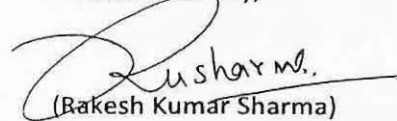 Rusharma.
(Rakesh Kumar Sharma)